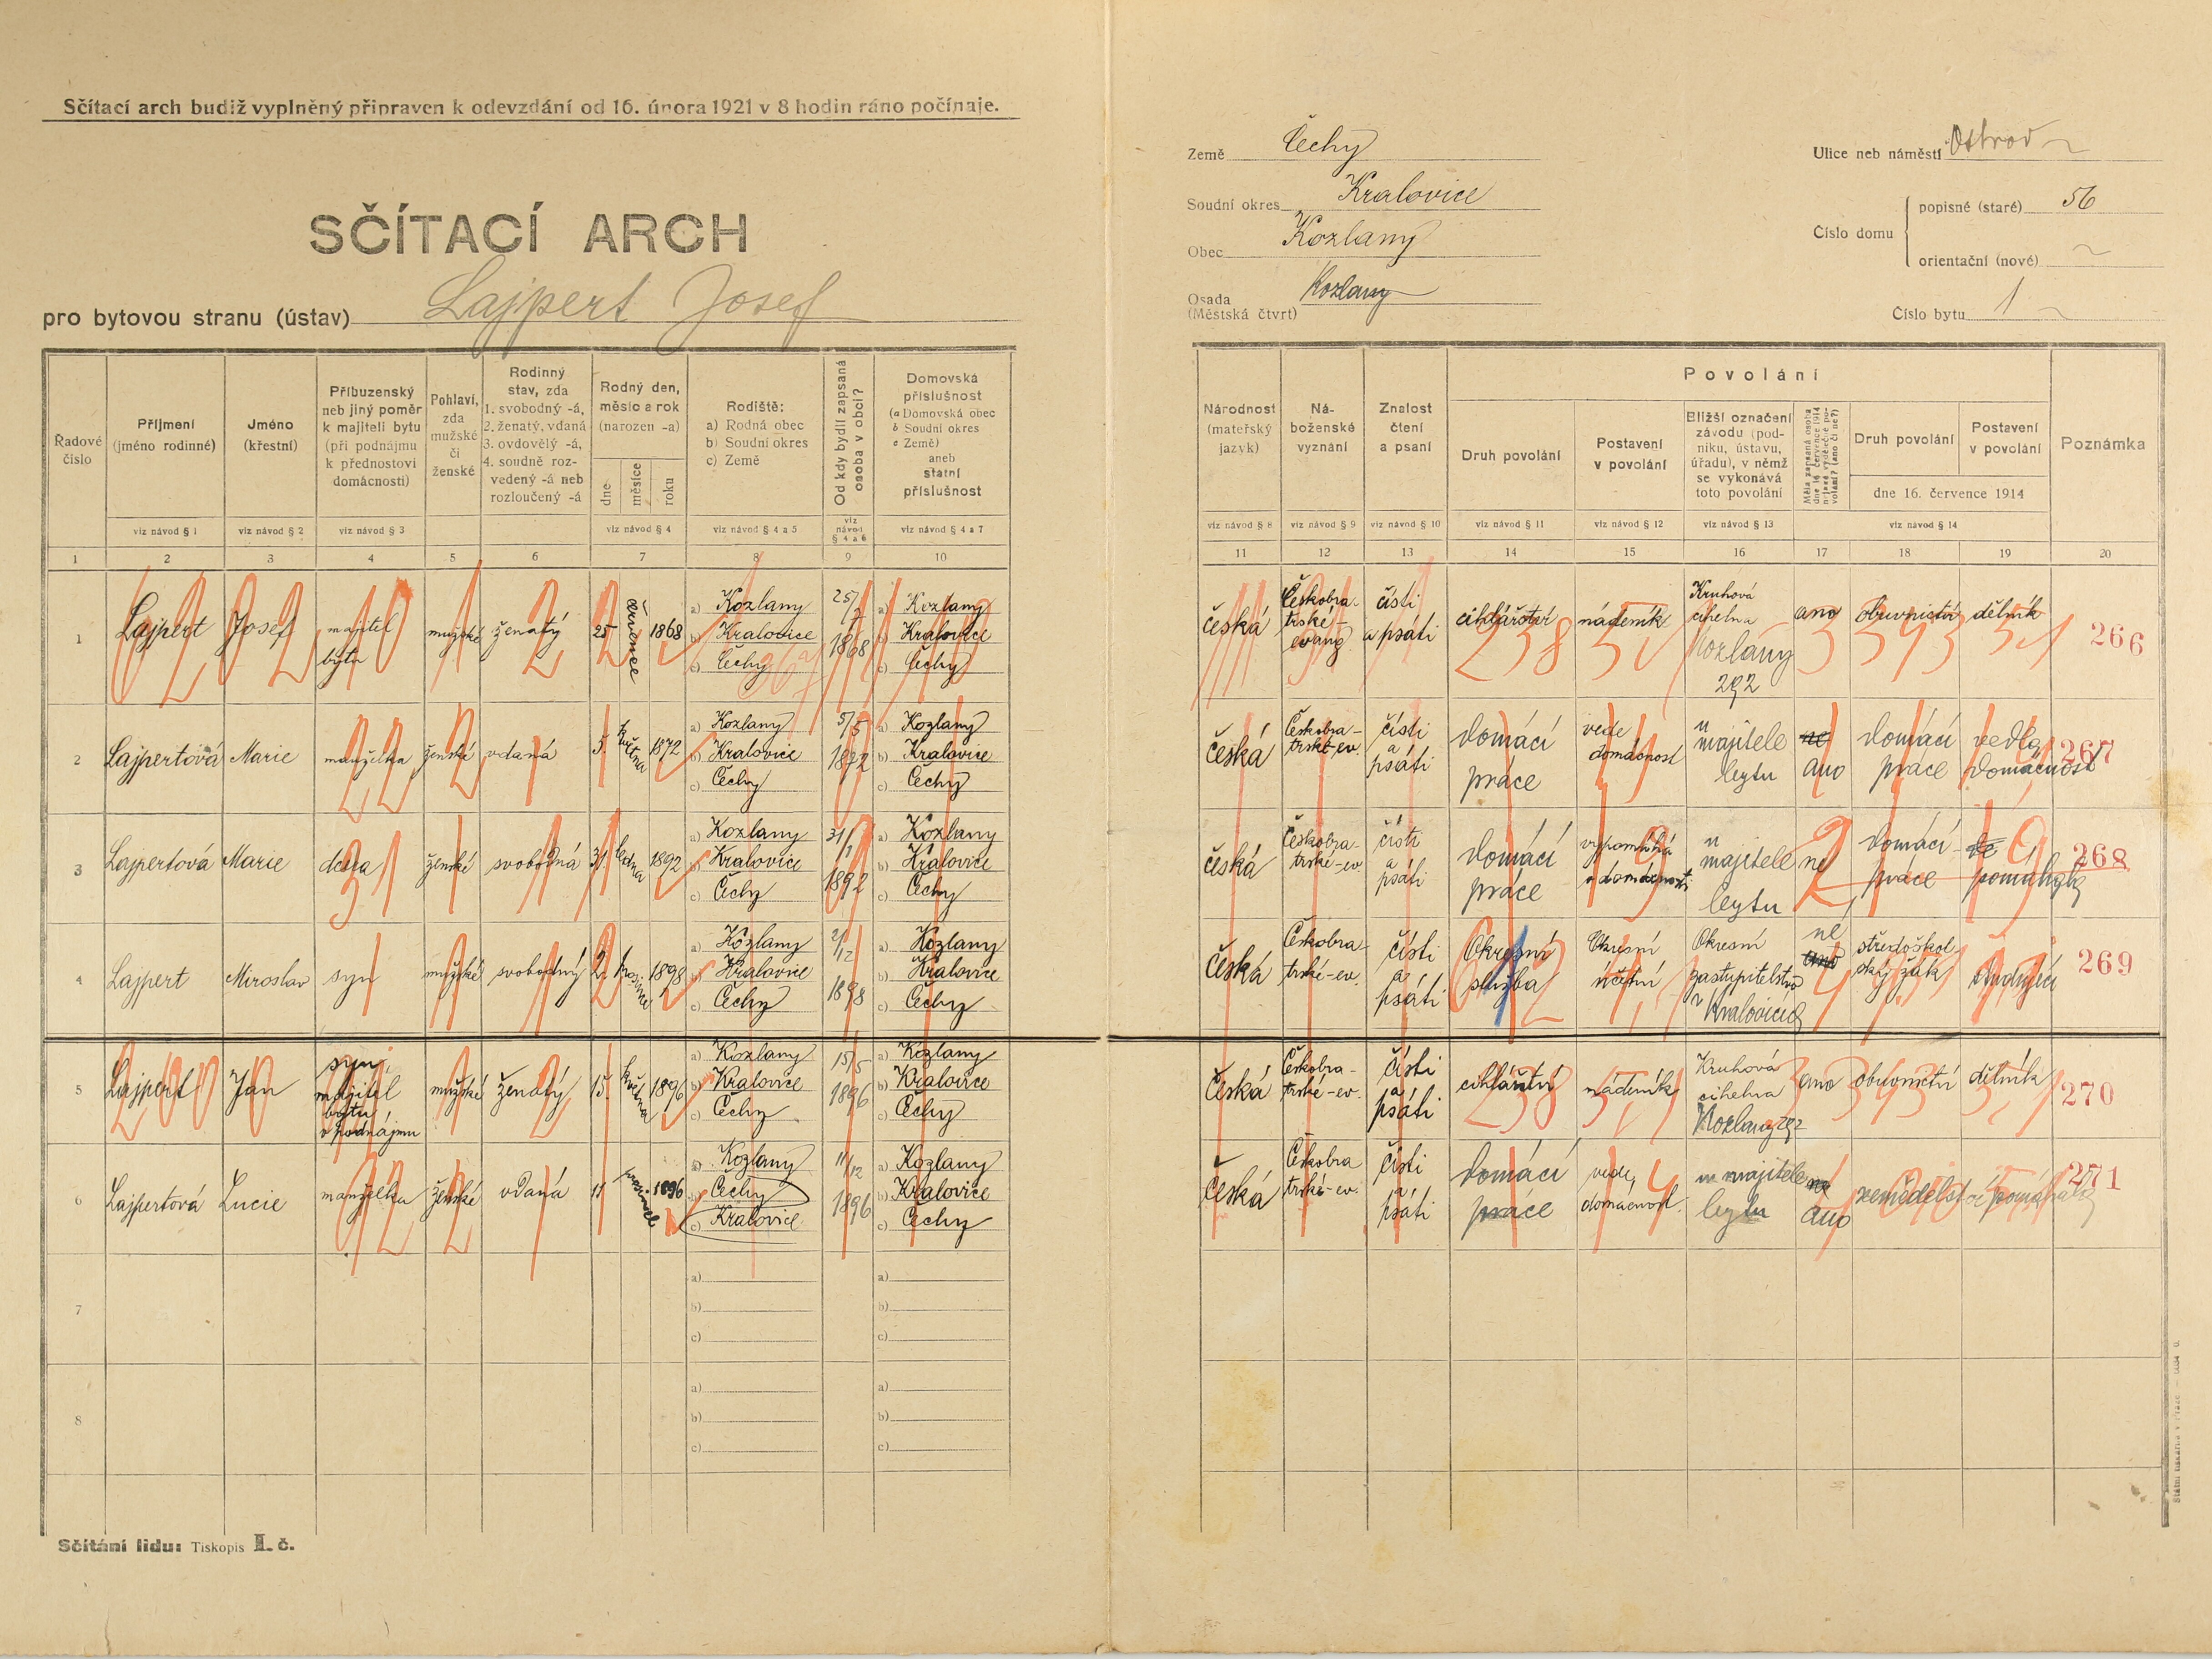 Sčítací arch budiž vyplněný připraven k odevzdání od 16. února 1921 v 8 hodin ráno počínaje.
SČÍTACÍ ARCH
pro bytovou stranu (ústav) Lajpert Josef
Země Čechy
Soudní okres Kralovice
Obec Kozlany
Osada Kozlany
(Městská čtvrt)
Ulice neb náměstí Ostrov
Číslo domu
popisné (staré) 56
orientační (nové) ~
Číslo bytu 1
Řadové číslo
Příjmení (jméno rodinné)
viz návod § 1
Jméno (křestní)
viz návod § 2
Příbuzenský neb jiný poměr k majiteli bytu (při podnájmu k přednostovi domácnosti)
viz návod § 3
Pohlaví, zda mužské či ženské
Rodinný stav, zda
1. svobodný -á,
2. ženatý, vdaná
3. ovdovělý -á,
4. soudně rozvedený -á neb rozloučený -á
Rodný den, měsíc a rok (narozen -a)
dne
měsíce
roku
viz návod § 4
Rodiště:
a) Rodná obec
b) Soudní okres
c) Země
viz návod § 4 a 5
Od kdy bydlí zapsaná osoba v obci?
viz návod § 4 a 6
Domovská příslušnost
(a Domovská obec
b Soudní okres
c Země)
aneb
státní příslušnost
viz návod § 4 a 7
Národnost (mateřský jazyk)
viz návod § 8
Náboženské vyznání
viz návod § 9
Znalost čtení a psaní
viz návod § 10
Povolání
Druh povolání
viz návod § 11
Postavení v povolání
viz návod § 12
Bližší označení závodu (podniku, ústavu, úřadu), v němž se vykonává toto povolání
viz návod § 13
Měla zapsaná osoba dne 16. července 1914 nějaké výdělečné povolání? (ano či ne?)
Druh povolání
Postavení v povolání
dne 16. července 1914
viz návod § 14
Poznámka
1 2 3 4 5 6 7 8 9 10 11 12 13 14 15 16 17 18 19 20
1 Lajpert Josef majitel bytu mužské ženatý 25 července 1868 a) Kozlany b) Kralovice c) Čechy 25/7 1868 a) Kozlany b) Kralovice c) Čechy česká Českobratrské-evang čísti a psáti cihlářství nádeník Kruhová cihelna Kozlany 292 ano obuvnictví dělník 266
2 Lajpertová Marie manželka ženské vdaná 5. května 1872 a) Kozlany b) Kralovice c) Čechy 5/5 1872 a) Kozlany b) Kralovice c) Čechy česká Českobratrské-ev. čísti a psáti domácí práce vede domácnost u majitele bytu ne ano domácí práce vedla domácnost 267
3 Lajpertová Marie dcera ženské svobodná 31. ledna 1892 a) Kozlany b) Kralovice c) Čechy 31/1 1892 a) Kozlany b) Kralovice c) Čechy česká Českobratrské-ev. čísti a psáti domácí práce vypomáhá v domácnosti u majitele bytu ne domácí práce pomáhala 268
4 Lajpert Miroslav syn mužské svobodný 2. prosince 1898 a) Kozlany b) Kralovice c) Čechy 2/12 1898 a) Kozlany b) Kralovice c) Čechy česká Českobratrské-ev. čísti a psáti Okresní služba Okresní účetní Okresní zastupitelstvo v Kralovicích ne ano středoškolský žák studující 269
5 Lajpert Jan syn, majitel bytu v podnájmu mužské ženatý 15. května 1896 a) Kozlany b) Kralovice c) Čechy 15/5 1896 a) Kozlany b) Kralovice c) Čechy česká Českobratrské-ev. čísti a psáti cihlářství nádeník Kruhová cihelna Kozlany 292 ano obuvnictví dělník 270
6 Lajpertová Lucie manželka ženské vdaná 11 prosince 1896 a) Kozlany b) Čechy c) Kralovice 11/12 1896 a) Kozlany b) Kralovice c) Čechy česká Českobratrské-ev. čísti a psáti domácí práce vede domácnost. u majitele bytu ne ano zemědělství pomáhala 271
7 a) b) c) a) b) c)
8 a) b) c) a) b) c)
Sčítání lidu: Tiskopis I. č.